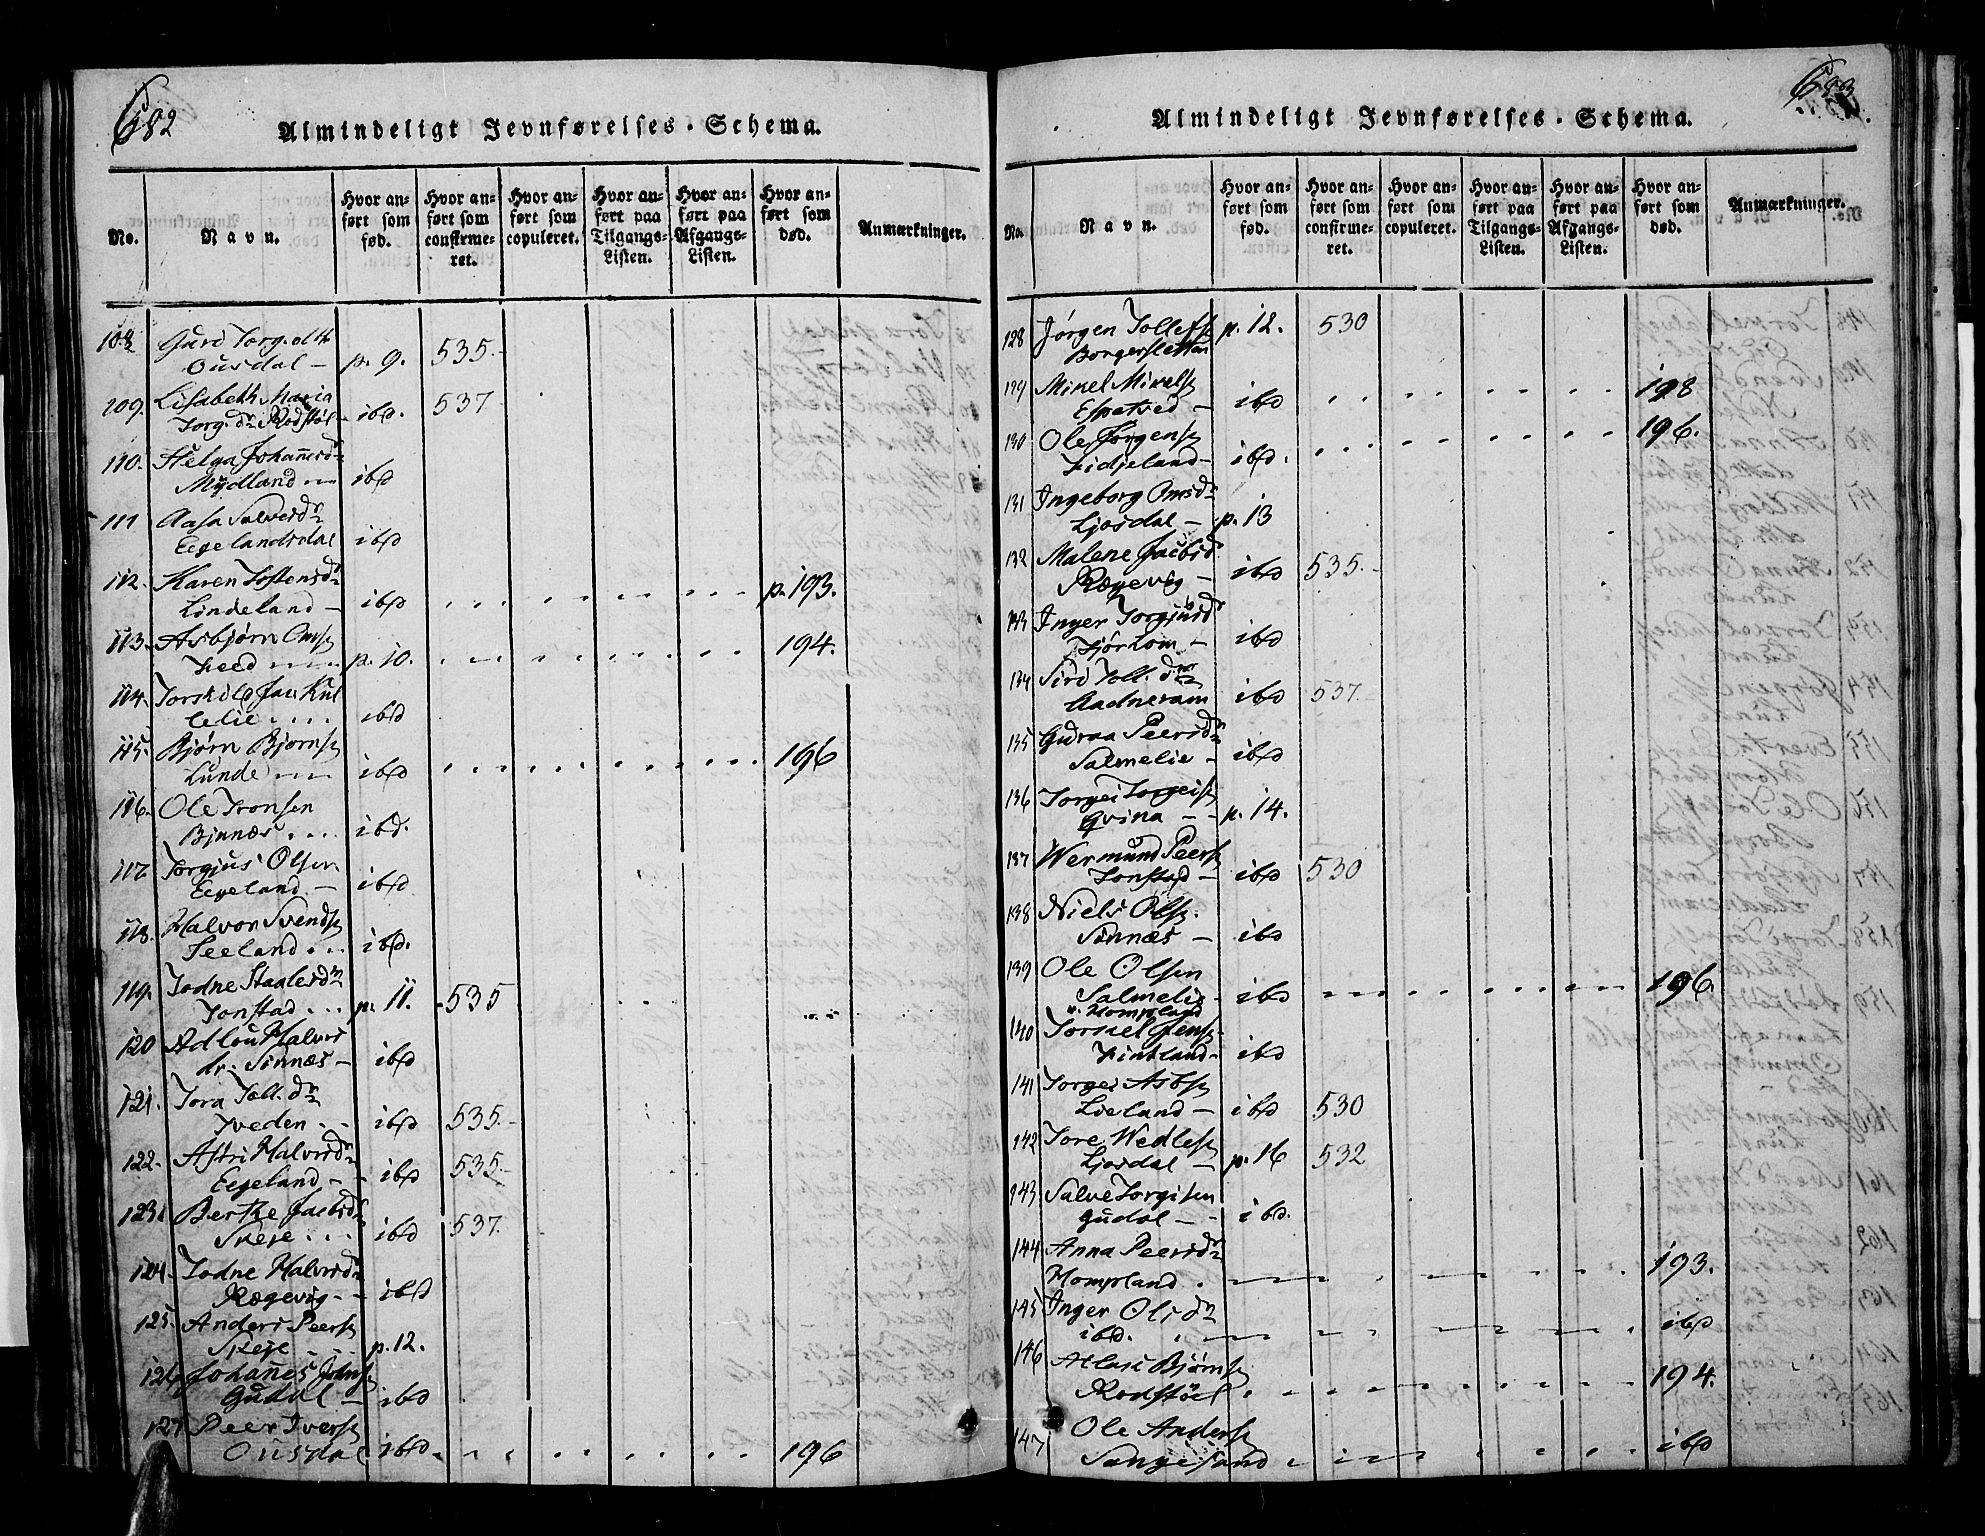 682
Almindeligt Jevnførelses-Schema.
No.
Navn.
Hvor anført som fød.
Hvor anført som confirmeret.
Hvor anført som copuleret.
Hvor anført paa Tilgangs-Listen.
Hvor anført paa Afgangs-Listen.
Hvor anført som død.
Anmærkninger.
108 Guri Torg.dtr
Ousdal p. 9. 535.
109. Lisabeth Maria
Torg.dr Rodstøl ibd. 537
110. Helga Johanesdr
Mydland ibd
111 Aasa Salvesdr
Eegelandsdal ibd
112. Karen Tostensdr
Lindeland ibd p. 193.
113. Asbjørn Oms
Feed p. 10. 194.
114. Torskild Jan Kul
lelie ibd
115. Bjørn Bjørns
Lunde ibd 196
116. Ole Tronsen
Bjunæs ibd.
117. Torgjus Olsen
Eegeland ibd
118. Halvor Svends
Seeland ibd.
119. Todne Staalesdr
Tonstad p. 11. 535
120 Adlou Halvors
dr. Sinnæs ibd
121. Tora Toll.dr
Tveden ibd 535.
122. Astri Halvorsdr
Eegeland ibd 535.
123. Berthe Jacobsdr
Skeje ibd 537.
124. Todne Halvorsdr
Rægevig ibd
125. Anders Peers
Skeje p. 12.
126. Johanes Johns
Gudal ibd
127 Peer Ivers
Ousdal ibd 196
683
Almindeligt Jevnførelses-Schema.
No.
Navn.
Hvor anført som fød.
Hvor anført som confirmeret.
Hvor anført som copuleret.
Hvor anført paa Tilgangs-Listen.
Hvor anført paa Afgangs-Listen.
Hvor anført som død.
Anmærkninger.
128 Jørgen Tollefs p. 12. 530
Borgersletten
129 Mikel Mikels
Espetved ibd 198
130 Ole Jørgens
Fidjeland ibd. 196.
131 Ingeborg Omsdr
Ljosdal p. 13
132 Malene Jacobsd
Rægevig ibd 535.
133 Inger Torgjusd
Fjørhom ibd
134 Siri Toll.dr
Aadneram ibd 537.
135 Gudraa Peersdr
Salmelie ibd
136 Torgei Torgeis
Qvina p. 14.
137 Wermund Peers
Tonstad ibd 530
138 Niels Ols.
Sinnæs ibd
139 Ole Olsen
Salmelie ibd 196.
v. Hompland
140 Torkel Jens
Fintland ibd
141 Torgei Asbs
Lieland ibd 530
142 Tore Wedles
Ljosdal p. 16 532
143. Salve Torgisen
Gudal ibd.
144 Anna Peersdr
Hompland 193.
145 Inger Olsdr
ibd. ibd
146 Atlak Bjørns
Rodstøl 194.
147 Ole Anders
Sangesand ibd